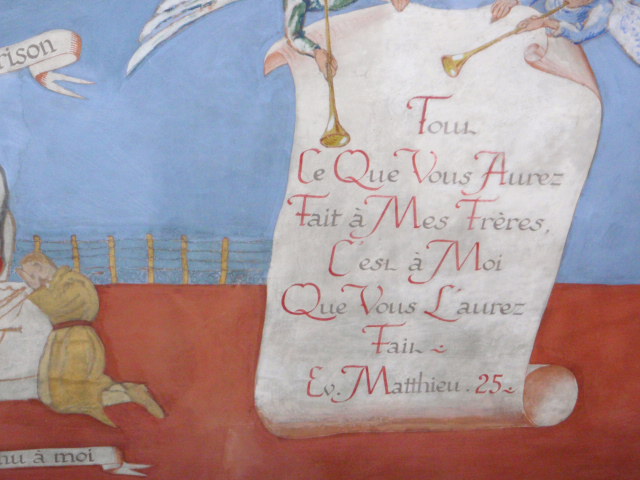 rison
Tout
Ce Que Vous Aurez
Fait à Mes Frères,
C'est à Moi
Que Vous L'aurez
Fait ~
Ev. Matthieu. 25~
nu à moi